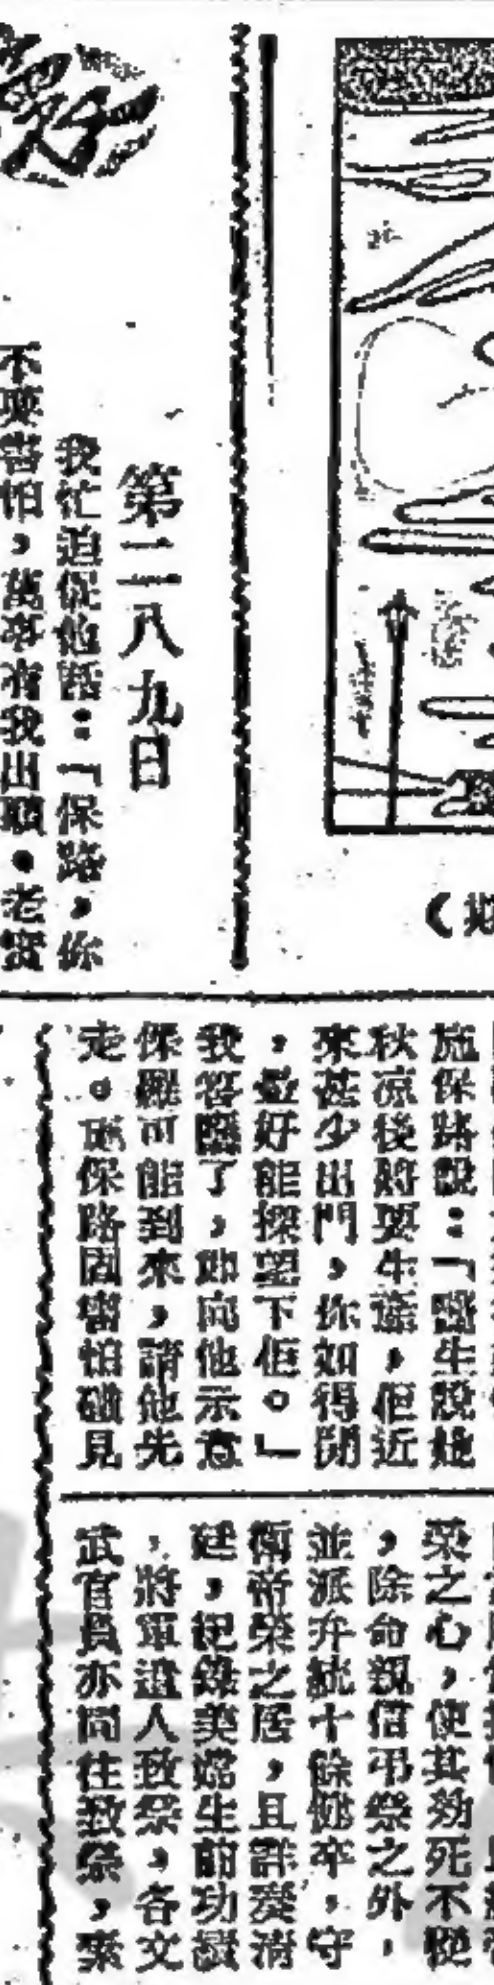 第二八九日
我忙迫促他話：「保路，你
不要害怕，萬事有我出頭。老實
施保路說：「醫生說她
秋凉後將要生產，佢近
來甚少出門，你如得閒
，最好能探望下佢。」
我答應了，即向他示意
保羅可能到來，請他先
走。施保路固害怕碰見
榮之心，使其効死不
，除命親信弔祭之外，
並派弁統十餘健卒，守
衛帝榮之居，且詳
廷，紀錄美嫦生前功績
，將軍遣人致祭，各文
武官員亦同往致祭，